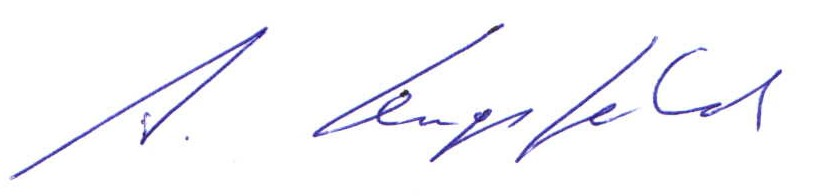 A. Lengsfeld